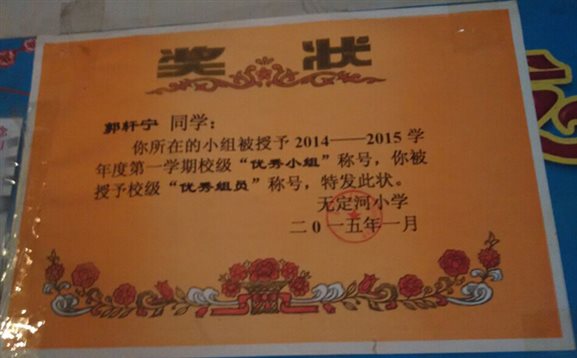 奖 状
郭轩宁 同学：
你所在的小组被授予2014——2015学
年度第一学期校级“优秀小组”称号，你被
授予校级“优秀组员”称号，特发此状。
无定河小学
二0一五年一月